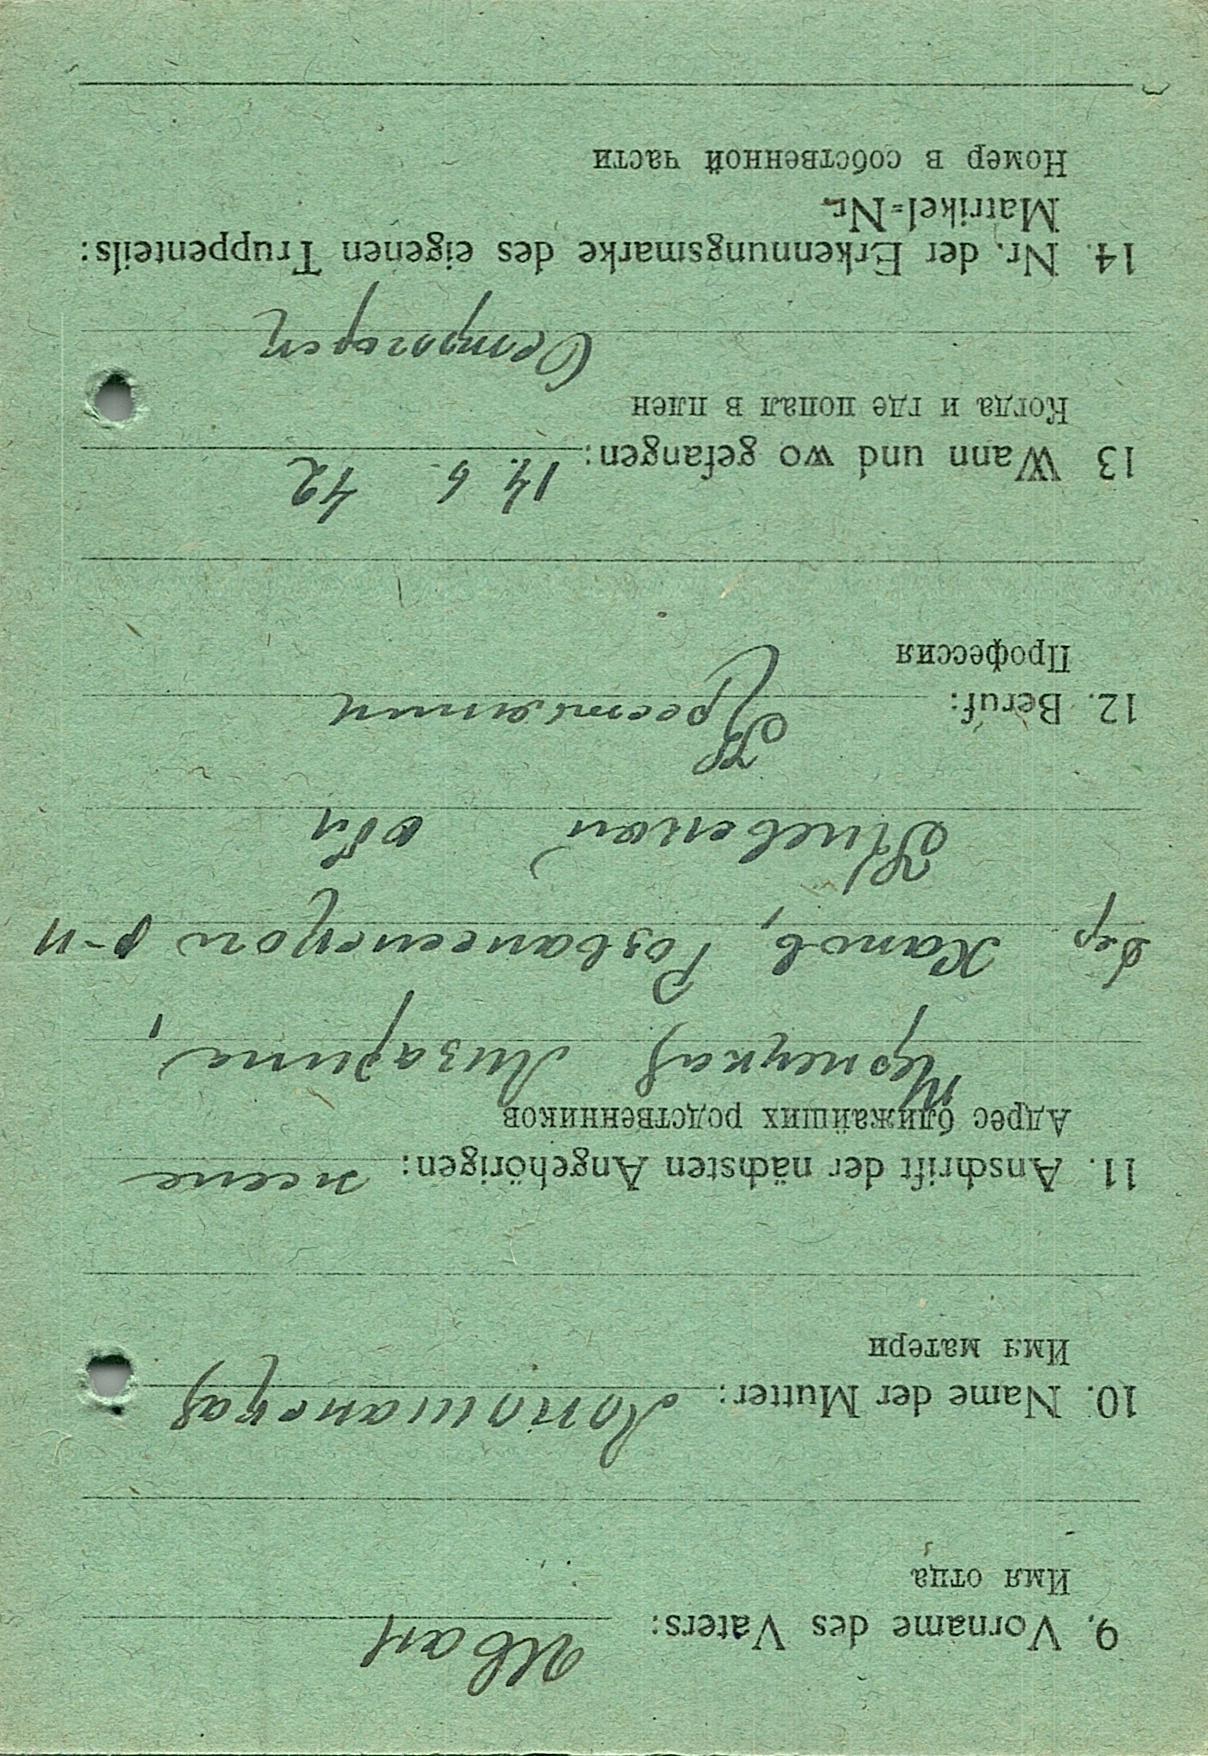 9. Vorname des Vaters: Иван
Имя отца
10. Name der Mutter: Лопошанская
Имя матери
11. Anschrift der nächsten Angehörigen: жене
Адрес ближайших родственников
Чернецкая
дер Хатов, р-н
Киевской обл
12. Beruf: Крестьянин
Профессия
13 Wann und wo gefangen: 14. 6 42
Когда и где попал в плен
14. Nr. der Erkennungsmarke des eigenen Truppenteils:
Matrikel=Nr.
Номер в собственной части